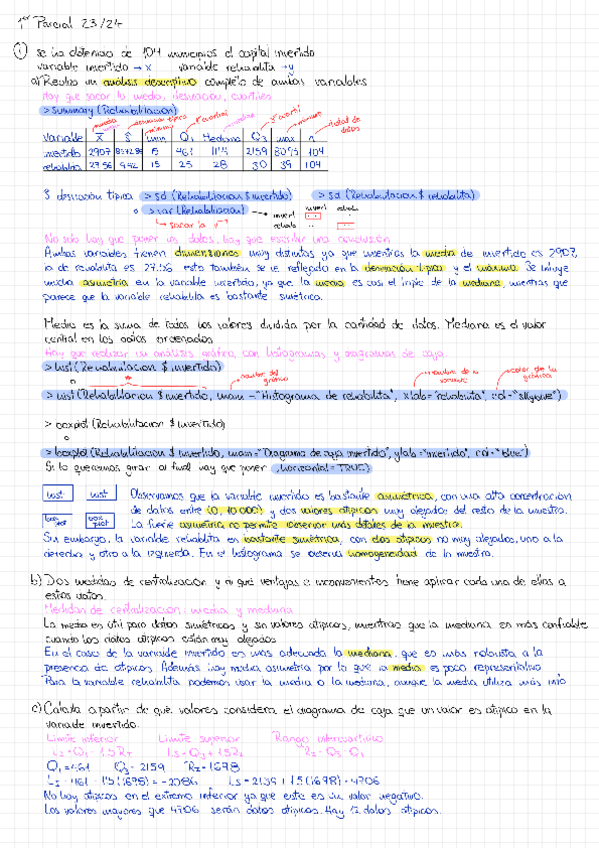 1er Parcial 23/24
① Se ha obtenido de 104 municipios el capital invertido
variable invertido → x variable rehabilita → y
a) Realiza un análisis descriptivo completo de ambas variables
Hay que sacar la media, desviación, cuartiles
> summary(Rehabilitacion)
media desviación típica mínimo 1er cuartil mediana 3er cuartil máximo total de datos
Variable x̄ S min Q1 Mediana Q3 max n
invertido 2907 15 461 1114 2159 104
rehabilita 27'56 9'42 15 25 28 30 39 104
S desviación típica > sd(Rehabilitacion$invertido) > sd(Rehabilitacion$rehabilita)
o > var(Rehabilitacion) → invert rehab
sacar la √ invert
rehab
No solo hay que poner los datos, hay que escribir una conclusión
Ambas variables tienen dimensiones muy distintas ya que mientras la media de invertido es 2907,
la de rehabilita es 27'56. esto también se ve reflejado en la desviación típica y el máximo. Se intuye
mucha asimetría en la variable invertido, ya que la media es casi el triple de la mediana, mientras que
parece que la variable rehabilita es bastante simétrica.
Media es la suma de todos los valores dividida por la cantidad de datos. Mediana es el valor
central en los datos ordenados
Hay que realizar un análisis gráfico, con histogramas y diagramas de caja.
> hist(Rehabilitacion $ invertido)
o nombre del gráfico nombre de la variable color de la gráfica
> hist(Rehabilitacion $ invertido, main = "Histograma de rehabilita", xlab="rehabilita", col="skyblue")
> boxplot(Rehabilitacion $ invertido)
o
> boxplot(Rehabilitacion $ invertido, main="Diagrama de caja invertido", ylab="invertido", col="blue")
Si lo queremos girar al final hay que poner , horizontal = TRUE)
hist hist Observamos que la variable invertido es bastante asimétrica, con una alta concentración
de datos entre (0, 10 000) y dos valores atípicos muy alejados del resto de la muestra.
box plot box plot La fuerte asimetría no permite observar más detalles de la muestra.
Sin embargo, la variable rehabilita en bastante simétrica, con dos atípicos no muy alejados, uno a la
derecha y otro a la izquierda. En el histograma se observa homogeneidad de la muestra.
b) Dos medidas de centralización y di qué ventajas o inconvenientes tiene aplicar cada una de ellas a
estos datos.
Medidas de centralización: media y mediana
La media es útil para datos simétricos y sin valores atípicos, mientras que la mediana en más confiable
cuando los datos atípicos están muy alejados
En el caso de la variable invertido es más adecuada la mediana, que es más robusta a la
presencia de atípicos. Además hay mucha asimetría por lo que la media es poco representativa
Para la variable rehabilita podemos usar la media o la mediana, aunque la media utiliza más info
c) Calcula a partir de qué valores considera el diagrama de caja que un valor es atípico en la
variable invertido.
Límite inferior Límite superior Rango intercuartílico
Li = Q1 - 1.5RI Ls = Q3 + 1.5RI RI = Q3 - Q1
Q1 = 461 Q3 = 2159 RI = 1698
Li = 461 - 1'5 (1698) = -2086 Ls = 2159 + 1'5 (1698) = 4706
No hay atípicos en el extremo inferior ya que este es un valor negativo.
Los valores mayores que 4706 serán datos atípicos. Hay 12 datos atípicos.